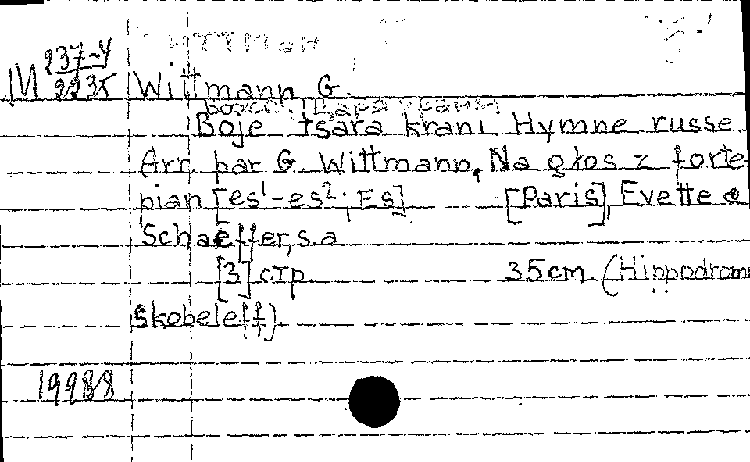 M 237-4
2235
Wittmann G.
Boje tsara krani Hymne russe.
Arr. par G. Wittmann, Na głos z forte-
pian [es¹-es²; Es] [Paris], Evette &
Schaeffer, s.a
[3] стр. 35cm. (Hippodrom
Skobeleff).
19988